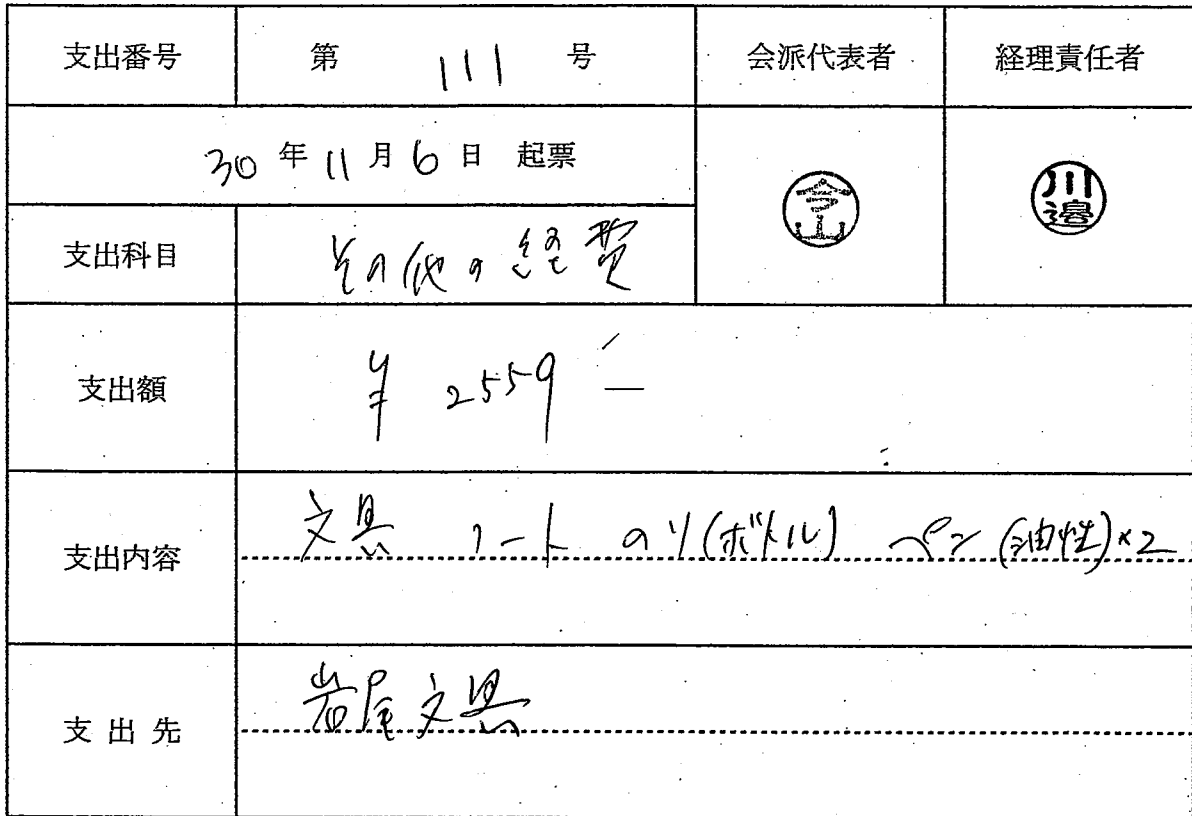 支出番号 第 111 号 会派代表者 経理責任者
30 年 11 月 6 日 起票
今山 川邉
支出科目 その他の経費
支出額 ¥ 2559 ―
支出内容 文具 ノート のり(ボトル) ペン(油性)×2
支出先 岩尾文具